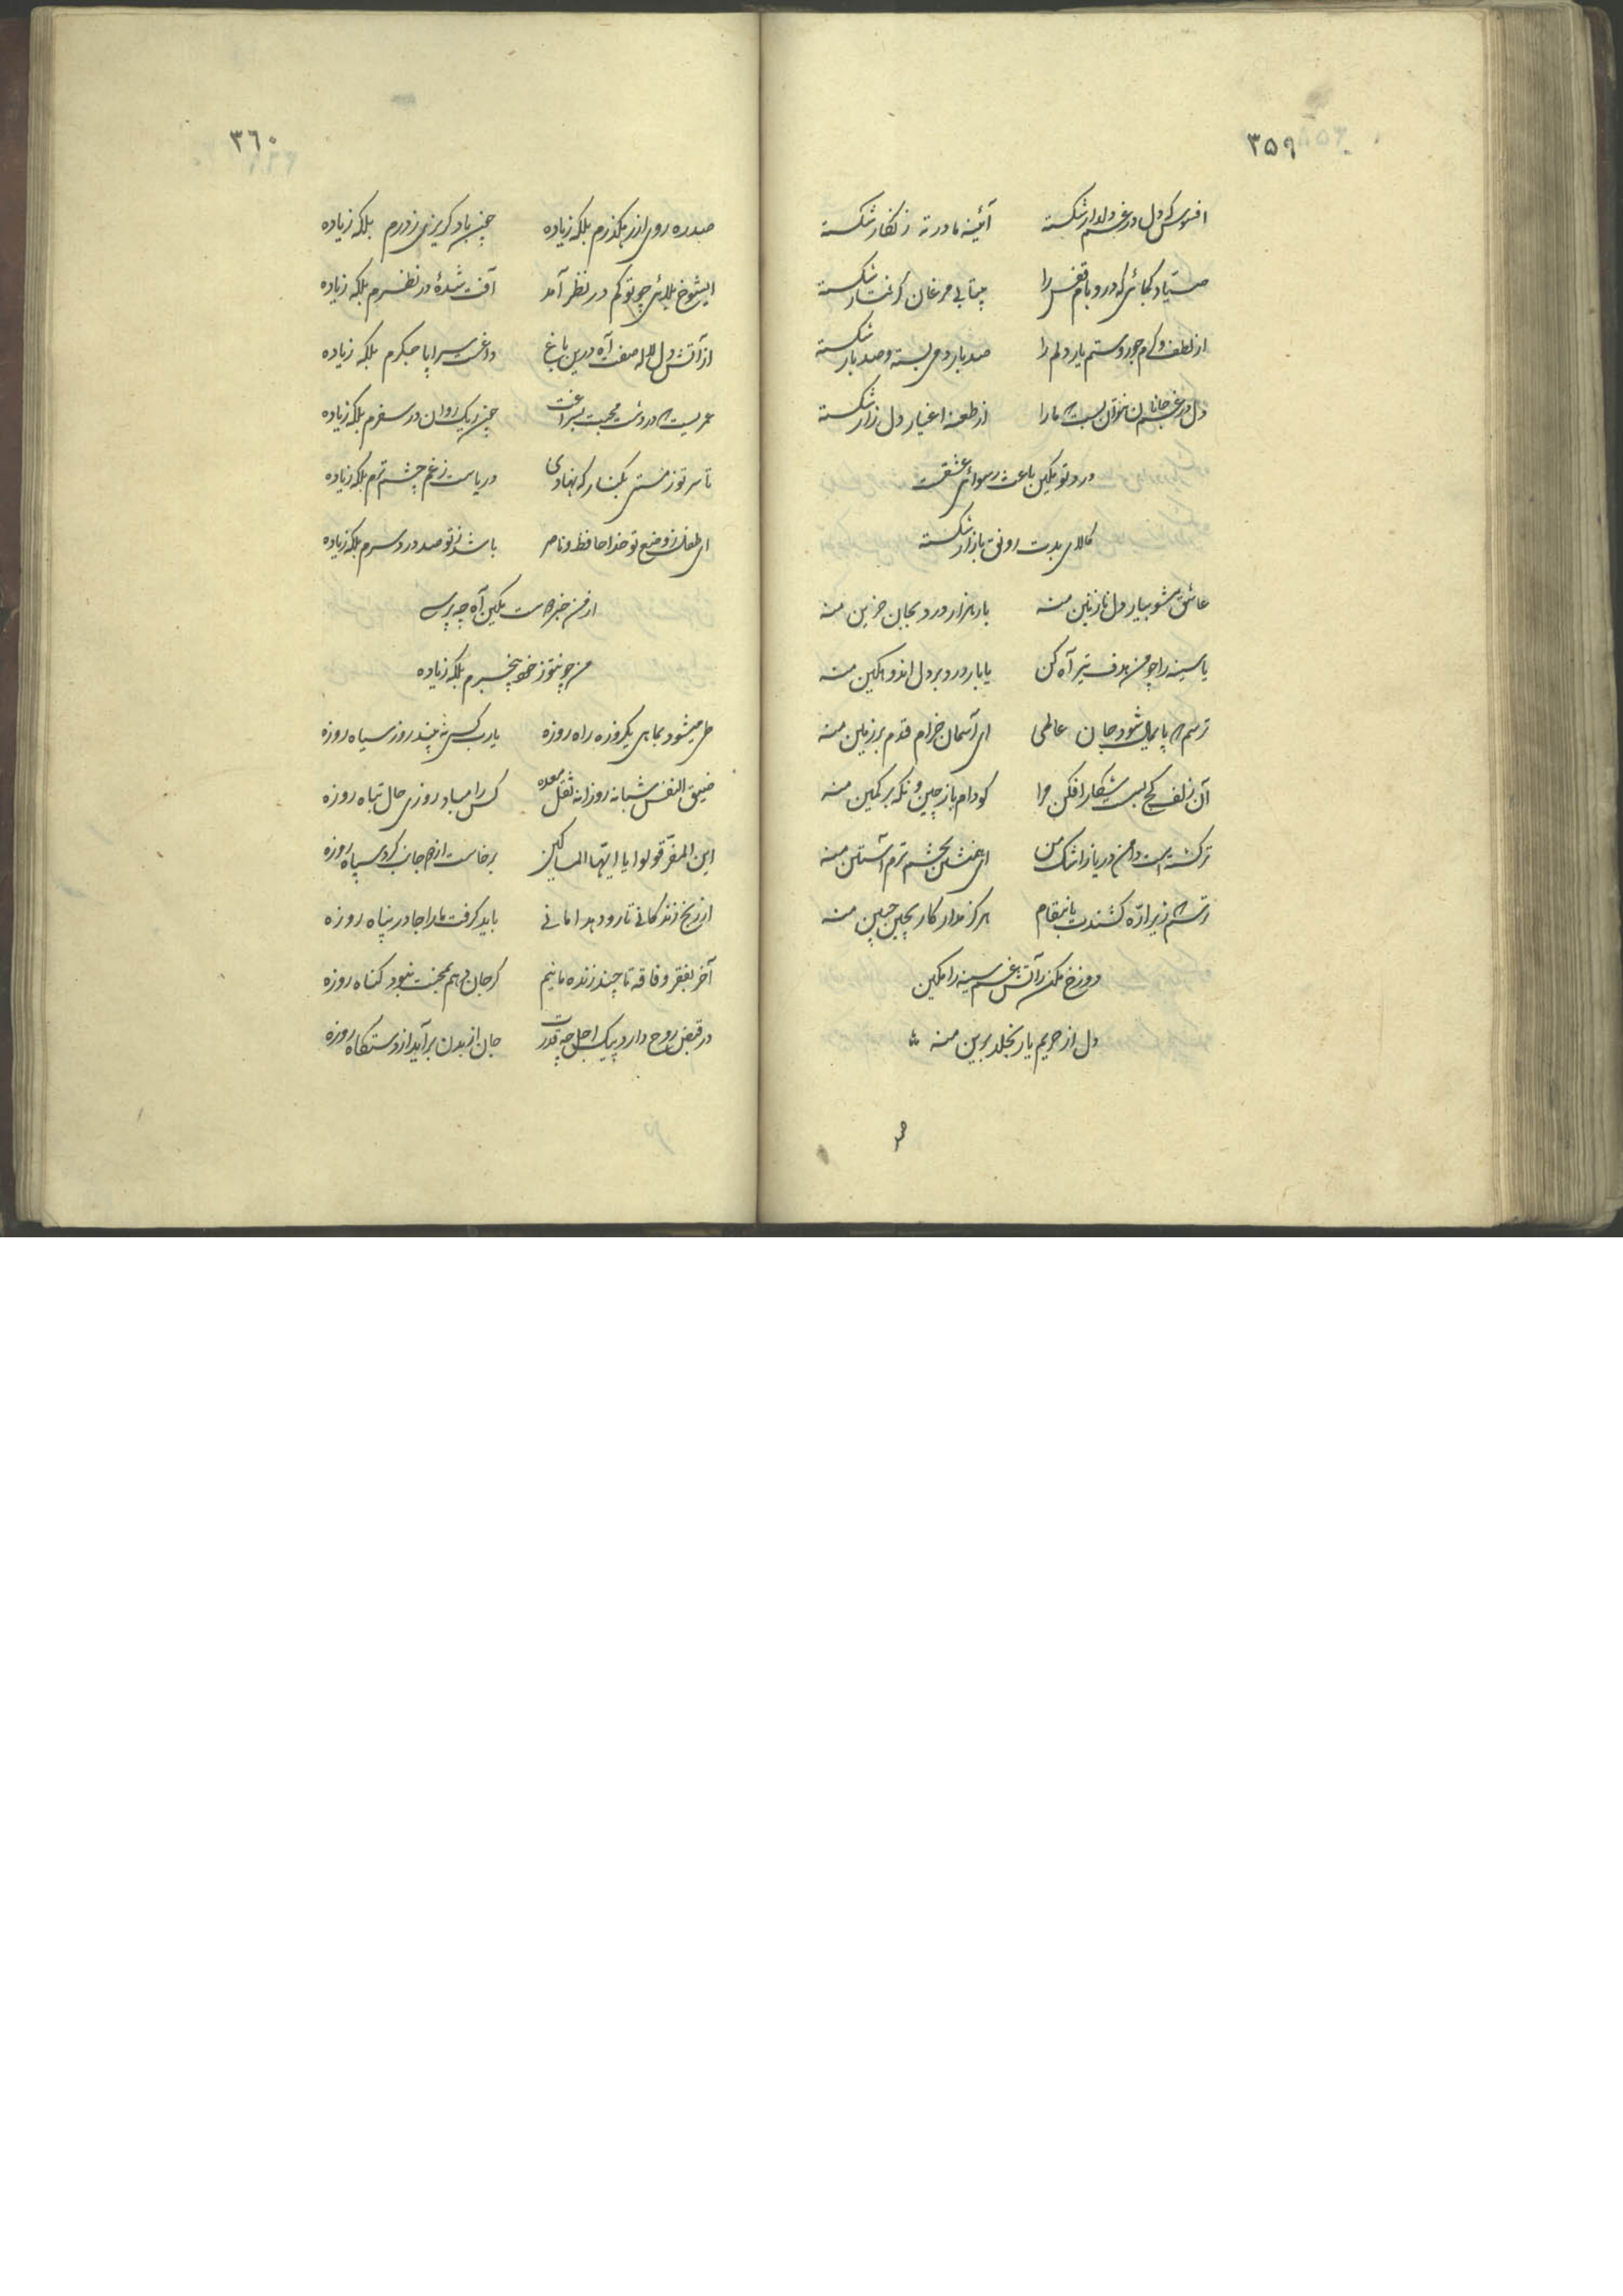 ۳۵۹
افسوس که دل در غم دلدار شکسته آئینه ما در ته زنگار شکسته
صیاد کجائی که در و بام قفس را بیتابی مرغان گرفتار شکسته
از لطف و کرم جور و ستم یار دلم را صد بار دمی بسته و صد بار شکسته
دل در غم جانان نتوان بست که ما را از طعنه اغیار دل زار شکسته
درد تو مکین باعث رسوائی عشقت
کالای بدت رونق بازار شکسته
عاشق مشو بیار دل نازنین منه بار هزار درد بجان حزین منه
یا سینه را چو من هدف تیر آه کن یا بار درد بر دل اندوهگین منه
ترسم که پایمال شود جان عالمی ای آسمان خرام قدم بر زمین منه
آن زلف کج بس است شکار افکن مرا کو دام باز چین و نگه بر کمین منه
تر گشته است دامن دریا ز اشک من ای همنشین بچشم ترم آستین منه
زیر اره کشندت بانتقام هرگز مدار کار بچین جبین منه
دوزخ مکن ز آتش غم سینه را مکین
دل از حریم یار بخلد برین منه
۳۶۰
صد ره روی از رهگذرم بلکه زیاده چین باد گریزی ز درم بلکه زیاده
ایشوخ بلائی چو تو کم در نظر آمد آفت شدهٔ در نظرم بلکه زیاده
از آتش دل لاله صفت آه درین باغ داغست سراپا جگرم بلکه زیاده
عمریست که در دشت محبت بسراغت چون ریگ روان در سفرم بلکه زیاده
تا سر تو ز مستی بکنار که نهادی دریاست ز غم چشم ترم بلکه زیاده
ای طفل ز وضع تو خدا حافظ و ناصر باشد ز تو صد درد سرم بلکه زیاده
از من خبر مکین آه چه پرسی
من چو تو ز خود بیخبرم بلکه زیاده
طی میشود بماهی یکروزه راه روزه یارب کسی نه بیند روز سیاه روزه
ضیق النفس شبانه روزانه ثقل معده کس را مباد روزی حال تباه روزه
این المفر قولوا یا ایها المساکین برخاست از هر جانب گرد سپاه روزه
از رنج زندگانی تا رو دهد امانی باید گرفت ما را جا در پناه روزه
آخر بفقر و فاقه تا چند زنده مانیم گر جان دهم بمحنت نبود گناه روزه
در قبض روح دارد پیک اجل چه قدرت جان از بدن برآید از دستگاه روزه